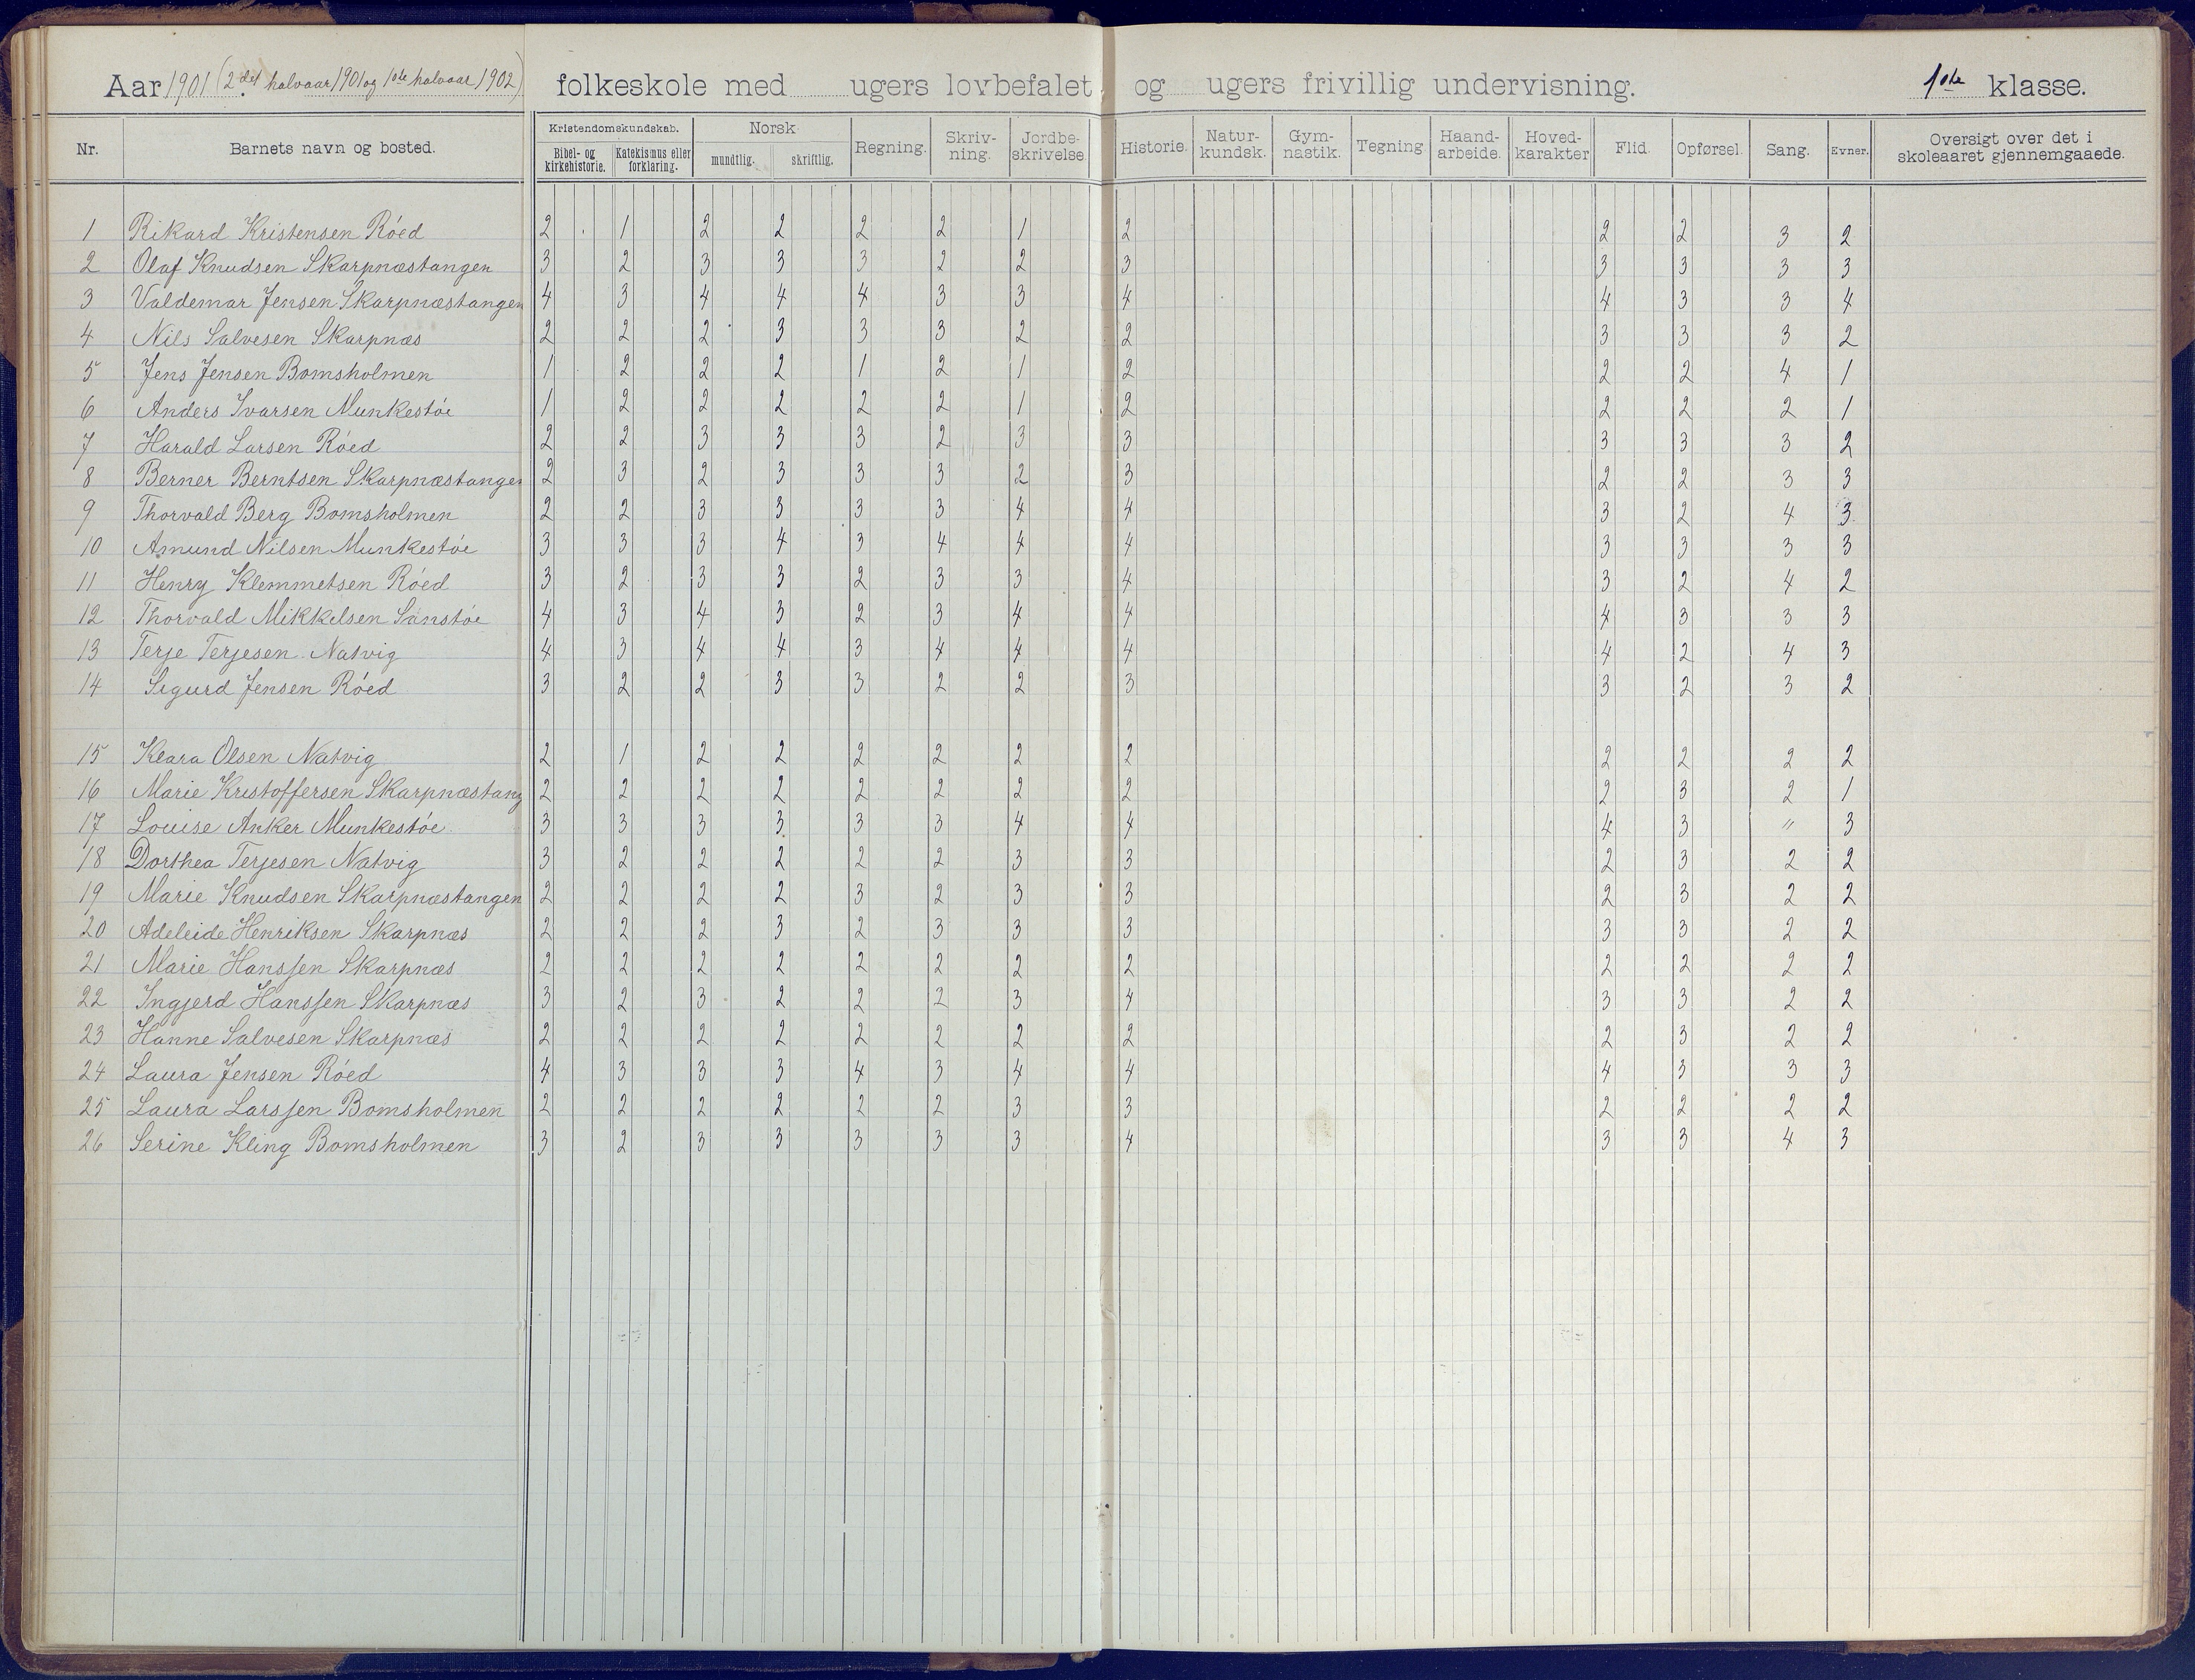 Aar 1901 (2det halvaar 1901 og 1ste halvaar 1902) folkeskole med ugers lovbefalet og ugers frivillig undervisning. 1ste klasse.
Nr. Barnets navn og bosted. Kristendomskundskab. Bibel- og kirkehistorie. Katekismus eller forklaring. Norsk mundtlig. skriftlig. Regning. Skriv-ning. Jordbe-skrivelse. Historie. Natur-kundsk. Gym-nastik. Tegning Haand-arbeide. Hoved-karakter Flid. Opførsel. Sang. Evner. Oversigt over det i skoleaaret gjennemgaaede.
1 Rikard Kristensen Róed 2 1 2 2 2 2 1 2 2 2 3 2
2 Olaf Knudsen Skarpnæstangen 3 2 3 3 3 2 2 3 3 3 3 3
3 Valdemar Jensen Skarpnæstangen 4 3 4 4 4 3 3 4 4 3 3 4
4 Nils Salvesen Skarpnæs 2 2 2 3 3 3 2 2 3 3 3 2
5 Jens Jensen Bomsholmen 1 2 2 2 1 2 1 2 2 2 4 1
6 Anders Ivarsen Munkestóe 1 2 2 2 2 2 1 2 2 2 2 1
7 Harald Larsen Róed 2 2 3 3 3 2 3 3 3 3 3 2
8 Berner Berntsen Skarpnæstangen 2 3 2 3 3 3 2 3 2 2 3 3
9 Thorvald Berg Bomsholmen 2 2 3 3 3 3 4 4 3 2 4 3
10 Amund Nilsen Munkestóe 3 3 3 4 3 4 4 4 3 3 3 3
11 Henry Klemmetsen Róed 3 2 3 3 2 3 3 4 3 2 4 2
12 Thorvald Mikkelsen Sanstóe 4 3 4 3 2 3 4 4 4 3 3 3
13 Terje Terjesen Natvig 4 3 4 4 3 4 4 4 4 2 4 3
14 Sigurd Jensen Róed 3 2 2 3 3 2 2 3 3 2 3 2
15 Klara Olsen Natvig 2 1 2 2 2 2 2 2 2 2 2 2
16 Marie Kristoffersen Skarpnæstang 2 2 2 2 2 2 2 2 2 3 2 1
17 Louise Anker Munkestóe 3 3 3 3 3 3 4 4 4 3 " 3
18 Dorthea Terjesen Natvig 3 2 2 2 2 2 3 3 2 3 2 2
19 Marie Knudsen Skarpnæstangen 2 2 2 2 3 2 3 3 2 3 2 2
20 Adeleide Henriksen Skarpnæs 2 2 2 3 2 3 3 3 3 3 2 2
21 Marie Hanssen Skarpnæs 2 2 2 2 2 2 2 2 2 2 2 2
22 Ingjerd Hanssen Skarpnæs 3 2 3 2 2 2 3 4 3 3 2 2
23 Hanne Salvesen Skarpnæs 2 2 2 2 2 2 2 2 2 3 2 2
24 Laura Jensen Róed 4 3 3 3 4 3 4 4 4 3 3 3
25 Laura Larssen Bomsholmen 2 2 2 2 2 2 3 3 2 2 2 2
26 Serine Kling Bomsholmen 3 2 3 3 3 3 3 4 3 3 4 3